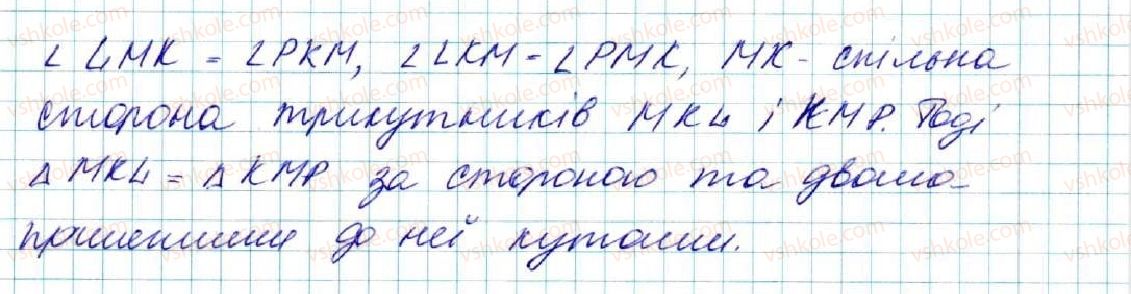 ∠LMK = ∠PKM, ∠LKM = ∠PMK, MK - спільна
сторона трикутників MKL і KMP. Тоді
△MKL = △KMP за стороною та двома
прилеглими до неї кутами.
vshkole.com